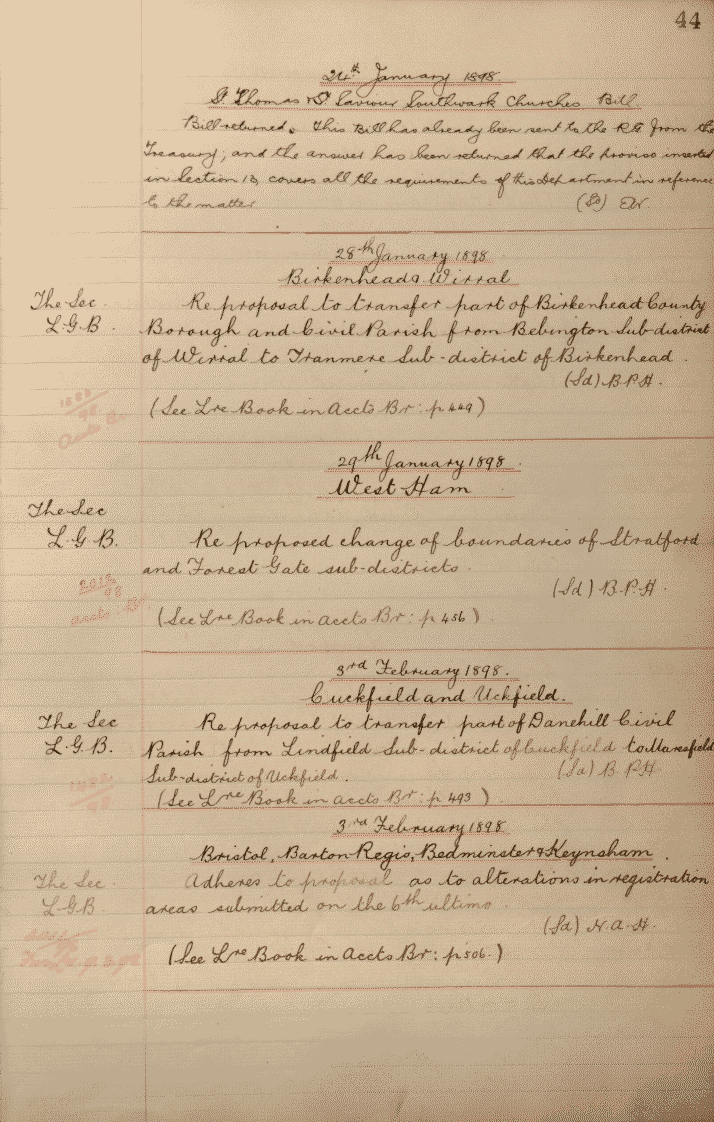 44
24th January 1898.
St Thomas & St Saviour Southwark Churches Bill
Bill returned. This Bill has already been sent to the R.G. from the
Treasury; and the answer has been returned that the proviso inserted
in Section 13, covers all the requirements of this Department in reference
to the matter
(Sd) EW.
28th January 1898
Birkenhead & Wirral
The Sec
L.G.B.
Re proposal to transfer part of Birkenhead County
Borough and Civil Parish from Bebington Sub-district
of Wirral to Tranmere Sub-district of Birkenhead.
(Sd) B.P.H.
98
Accts Br
(See Lre Book in Accts Br: p 449)
29th January 1898.
West Ham
The Sec
L.G.B.
Re proposed change of boundaries of Stratford
and Forest Gate sub-districts.
(Sd) B.P.H.
98
Accts Br
(See Lre Book in Accts Br: p 456)
3rd February 1898.
Cuckfield and Uckfield.
The Sec
L.G.B.
Re proposal to transfer part of Danehill Civil
Parish from Lindfield Sub-district of Cuckfield to Maresfield
Sub-district of Uckfield.
(Sd) B.P.H
98
(See Lre Book in Accts Br: p 493)
3rd February 1898
Bristol, Barton Regis, Bedminster & Keynsham.
The Sec.
L.G.B
Adheres to proposal as to alterations in registration
areas submitted on the 6th ultimo.
(Sd) N.A.H.
(See Lre Book in Accts Br: p 506.)